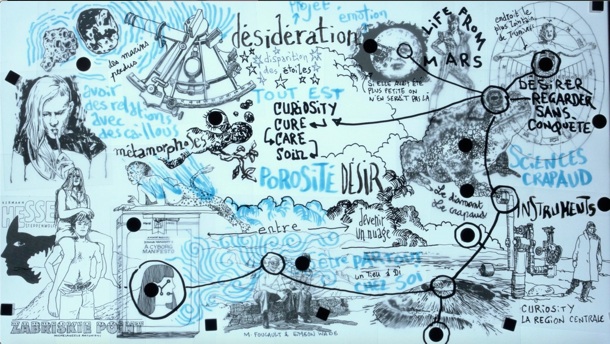 les marins
perdus
désidération
projet
émotion
disparition
des étoiles
LIFE FROM
MARS
endroit le
plus lointain
de l'univers
avoir
des relations
avec
des cailloux
TOUT EST
CURIOSITY
CURE
CARE
SOIN
SI ELLE AVAIT ÉTÉ
PLUS PETITE ON
N'EN SERAIT PAS LÀ
DÉSIRER
REGARDER
SANS
CONQUÊTE
métamorphoses
POROSITÉ
DÉSIR
SCIENCES
CRAPAUD
Le diamant
Le crapaud
INSTRUMENTS
HERMANN
HESSE
entre
devenir
un nuage
A CYBORG
MANIFESTO
être PARTOUT
CHEZ SOI
ZABRISKIE POINT
CURIOSITY
LA REGION CENTRALE